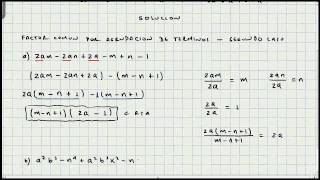 SOLUCION
FACTOR COMUN POR AGRUPACION DE TERMINOS - SEGUNDO CASO
a) 2am - 2an + 2a - m + n - 1
(2am - 2an + 2a) - (m - n + 1)
2a(m - n + 1) - 1(m - n + 1)
(m - n + 1)(2a - 1) ∝ RTA
2am/2a = m
2an/2a = n
2a/2a = 1
2a(m-n+1)/m-n+1 = 2a
b) a²b³ - n⁴ + a²b³x² - n